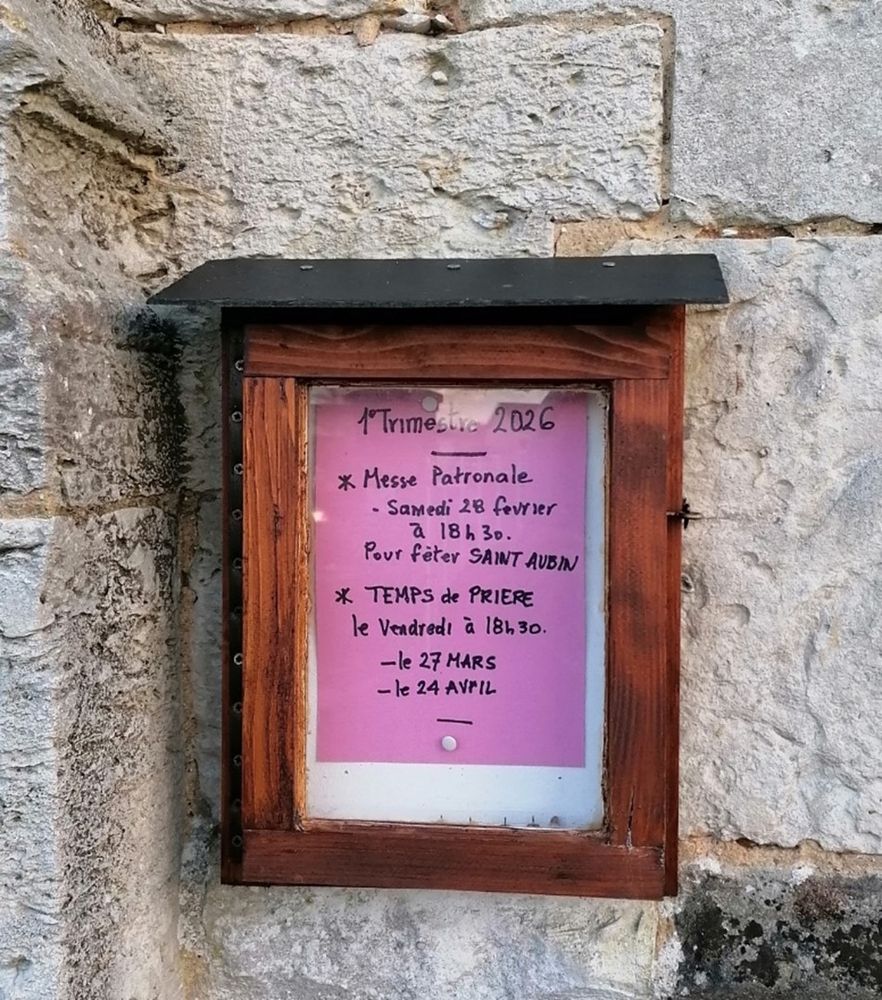 1° Trimestre 2026
* Messe Patronale
- Samedi 28 fevrier
à 18h30.
Pour fêter SAINT AUBIN
* TEMPS de PRIERE
le Vendredi à 18h30.
- le 27 MARS
- le 24 AVrIL